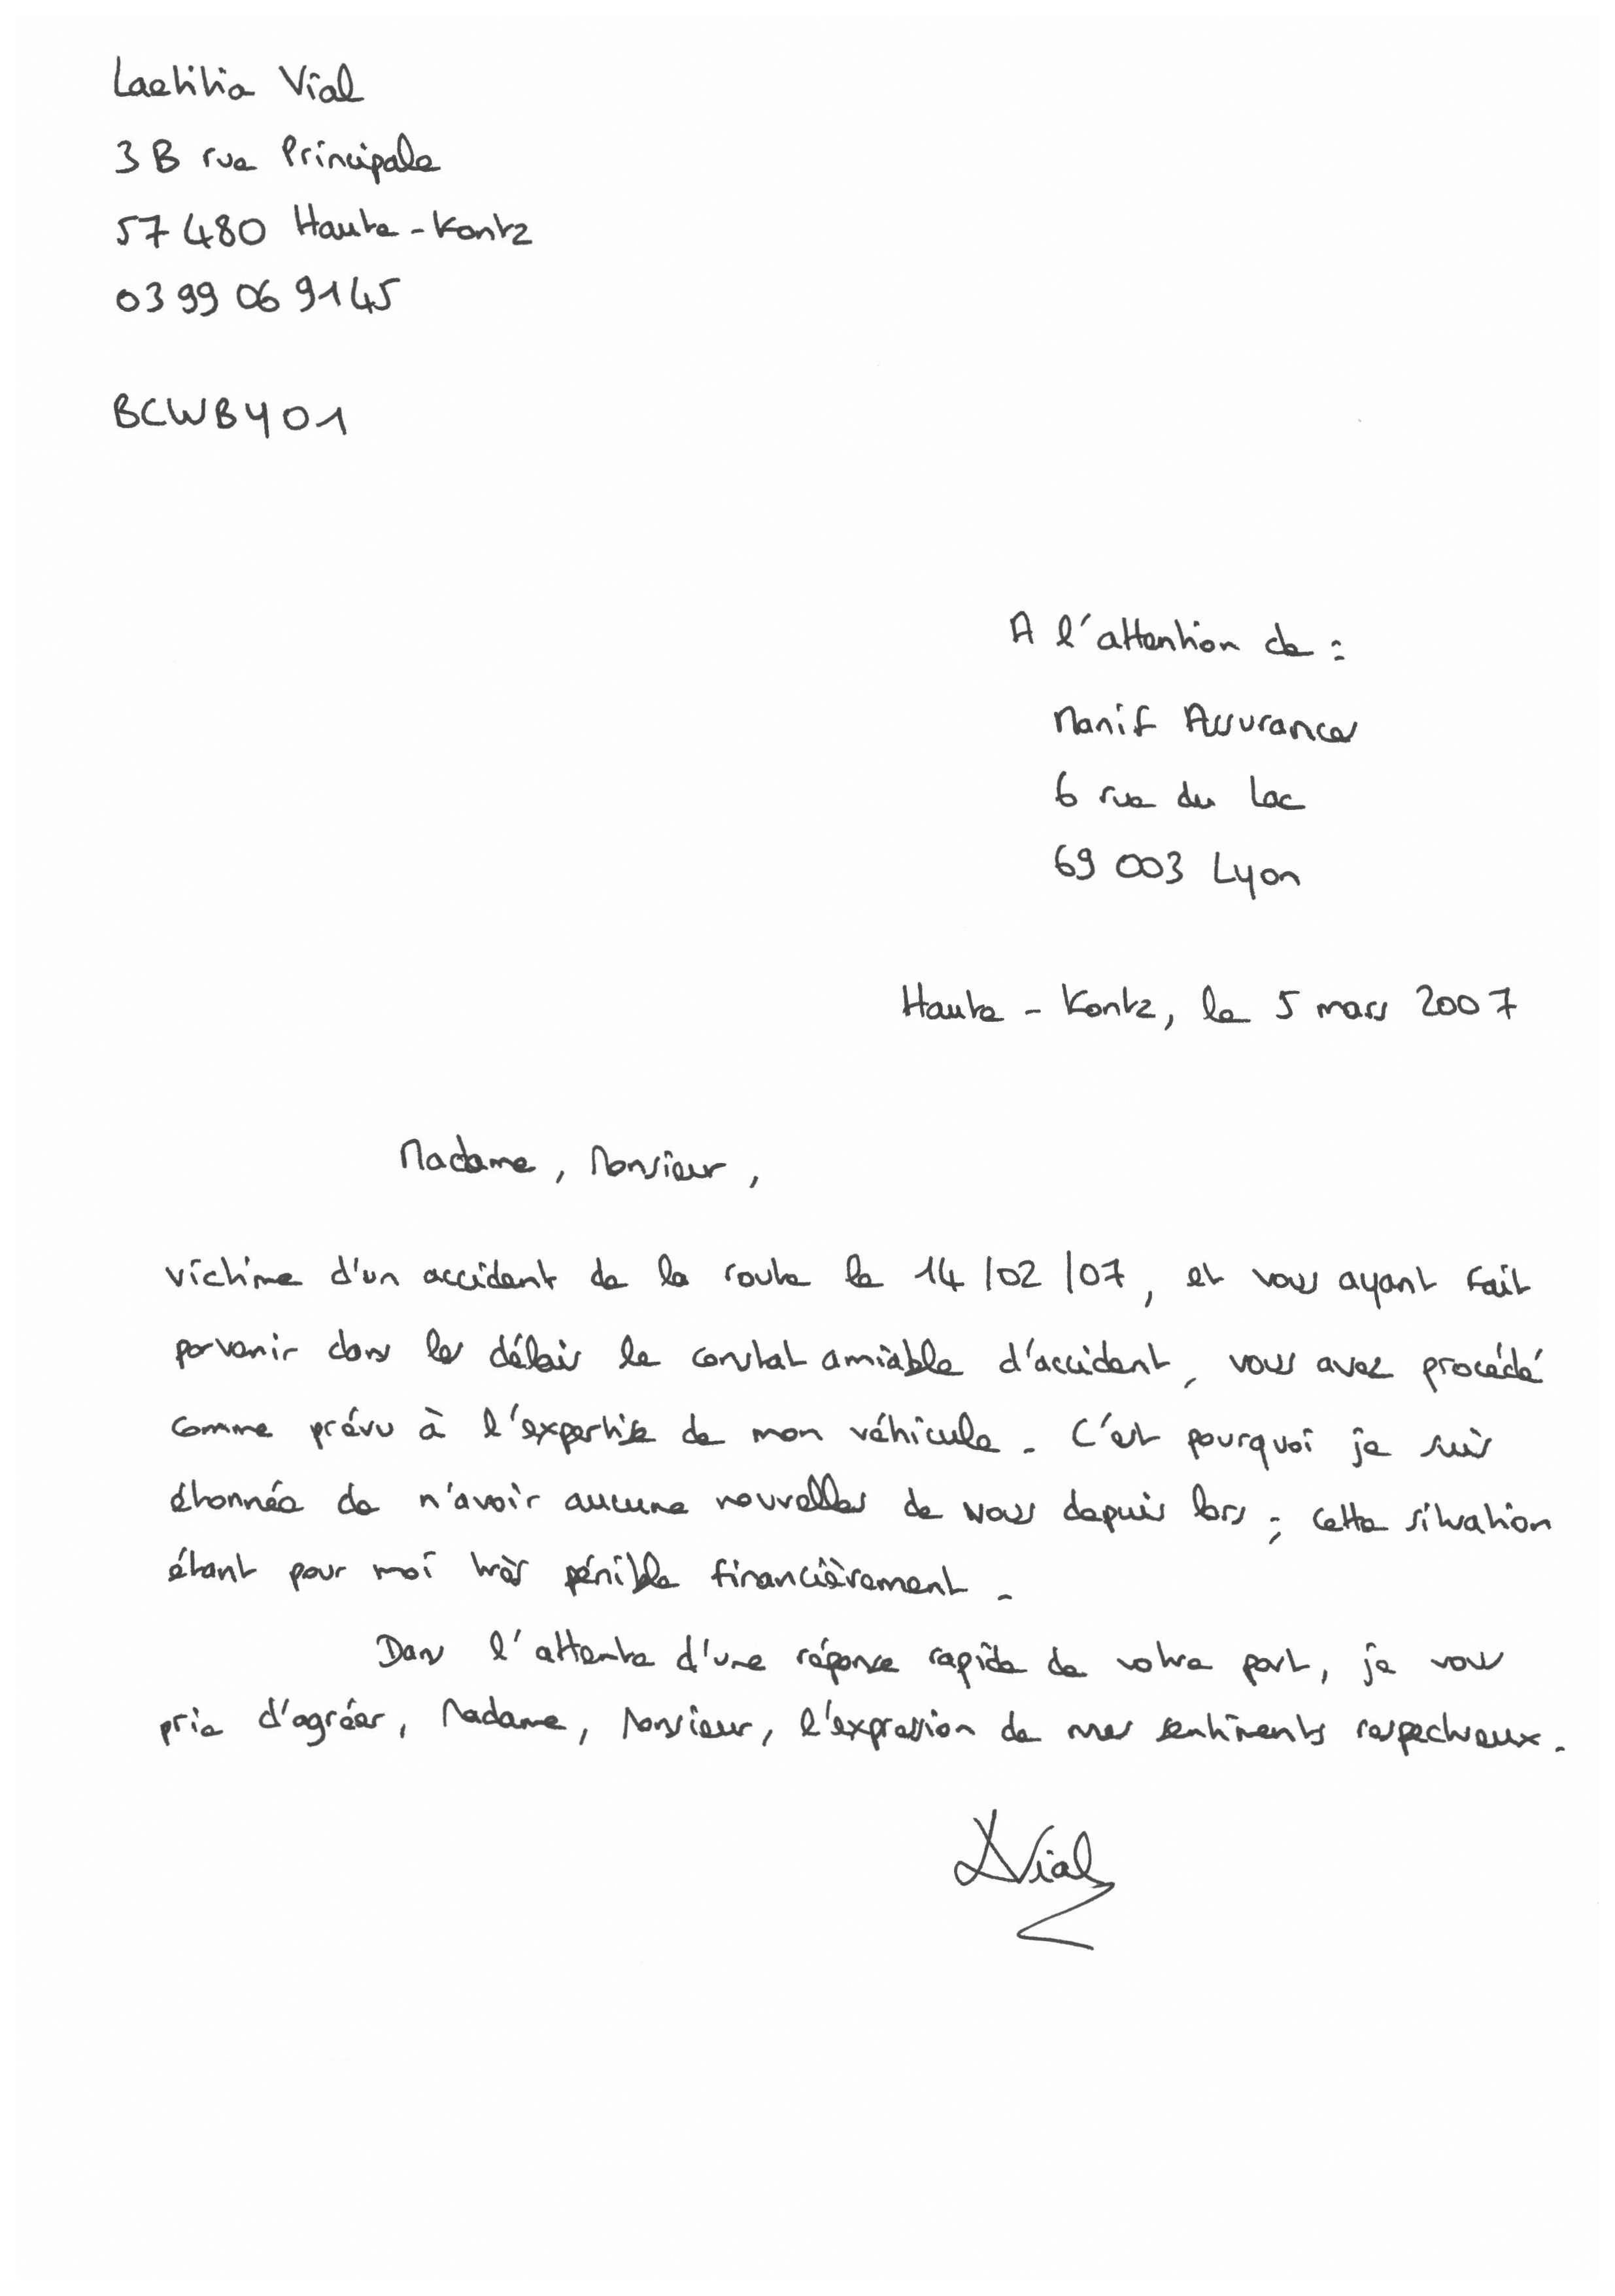 Laetitia Vial
3 B rue Principale
57 480 Haute-Kontz
03 99 06 91 45
BCWBY01
A l'attention de :
Manif Assurances
6 rue du Lac
69 003 Lyon
Haute - Kontz, le 5 mars 2007
Madame, Monsieur,
victime d'un accident de la route le 14/02/07, et vous ayant fait
parvenir dans les délais le constat amiable d'accident, vous avez procédé
comme prévu à l'expertise de mon véhicule. C'est pourquoi je suis
étonnée de n'avoir aucune nouvelles de vous depuis lors ; cette situation
étant pour moi très pénible financièrement.
Dans l'attente d'une réponse rapide de votre part, je vous
prie d'agréer, Madame, Monsieur, l'expression de mes sentiments respectueux.
LVial